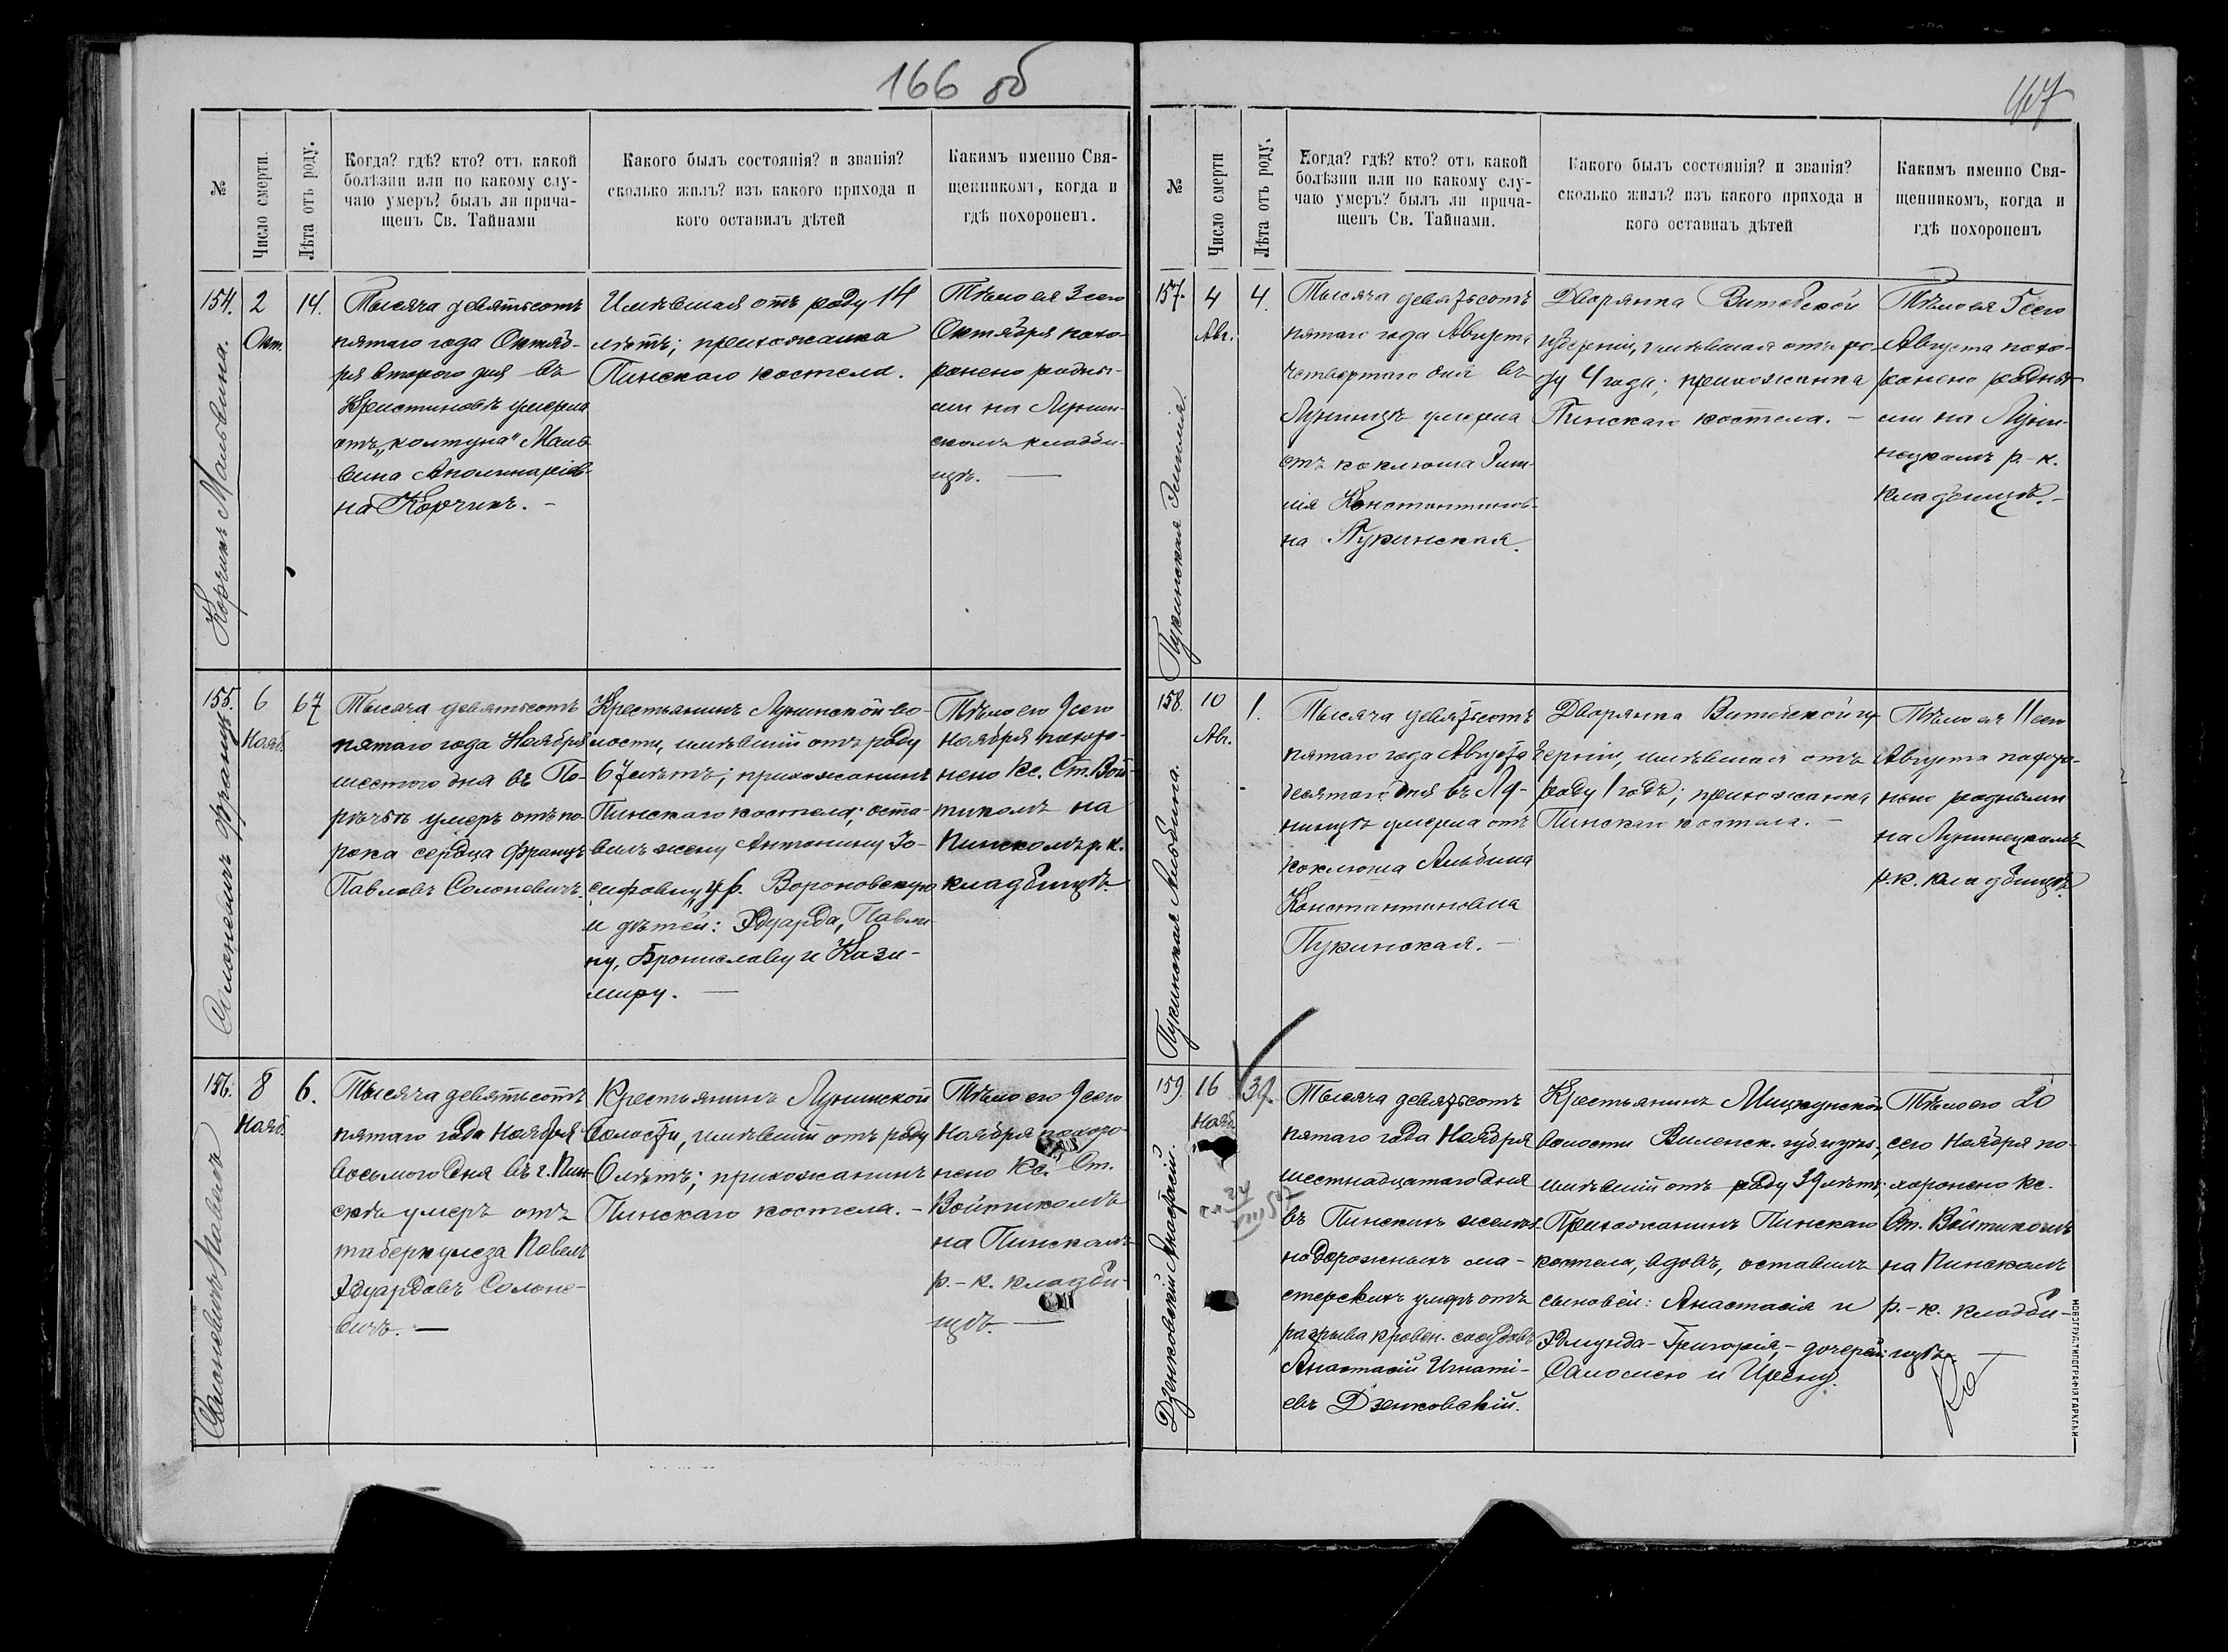 166 об
№
Число смерти.
Лѣта отъ роду.
Когда? гдѣ? кто? отъ какой
болѣзни или по какому слу-
чаю умеръ? былъ ли прича-
щенъ Св. Тайнами
Какого былъ состоянія? и званія?
сколько жилъ? изъ какого прихода и
кого оставилъ дѣтей
Какимъ именно Свя-
щенникомъ, когда и
гдѣ похороненъ.
154.
2
Окт.
14.
Корчикъ Мальвина.
Тысяча девятьсотъ
пятаго года Октяб-
ря втораго дня въ
Кристиновѣ умерла
отъ „колтуна" Маль-
вина Аполинаріев-
на Корчикъ. –
Имѣвшая отъ роду 14
лѣтъ; прихожанка
Пинскаго костела.
Тѣло ея 3 сего
Октября похо-
ронено родны-
ми на Лунин-
скомъ кладби-
щѣ. —
155.
6
Нояб.
67
Солоневичъ Францъ
Тысяча девятьсотъ
пятаго года Ноября
шестого дня въ По-
рѣчьѣ умеръ отъ по-
рока сердца Францъ
Павловъ Солоневичъ.
Крестьянинъ Лунинской во-
лости, имѣвшій отъ роду
67 лѣтъ; прихожанинъ
Пинскаго костела; оста-
вилъ жену Антонину Іо-
сифовну ур. Вороновскую
и дѣтей: Эдуарда, Павли-
ну, Брониславу и Кази-
миру. —
Тѣло его 9 сего
Ноября похоро-
нено Кс. Ст. Вой-
тикомъ на
Пинскомъ р. к.
кладбищѣ.
156.
8
Нояб.
6.
Солоневичъ Павелъ
Тысяча девятьсотъ
пятаго года Ноября
восьмого дня въ г. Пин-
скѣ умеръ отъ
таберкулеза Павелъ
Эдуардовъ Солоне-
вичъ. —
Крестьянинъ Лунинской
волости, имѣвшій отъ роду
6 лѣтъ; прихожанинъ
Пинскаго костела. –
Тѣло его 9 сего
Ноября похоро-
нено Кс. Ст.
Войтикомъ
на Пинскомъ
р.-к. кладби-
щѣ. —
167
№
Число смерти
Лѣта отъ роду.
Когда? гдѣ? кто? отъ какой
болѣзни или по какому слу-
чаю умеръ? былъ ли прича-
щенъ Св. Тайнами.
Какого былъ состоянія? и званія?
сколько жилъ? изъ какого прихода и
кого оставилъ дѣтей
Какимъ именно Свя-
щенникомъ, когда и
гдѣ похороненъ
157.
4
Авг.
4.
Пукинская Эмилія.
Тысяча девятьсотъ
пятаго года Августа
четвертаго дня въ
Лунинцѣ умерла
отъ коклюша Эми-
лія Константинов-
на Пукинская.
Дворянка Витебской
губерніи, имѣвшая отъ ро-
ду 4 года; прихожанка
Пинскаго костела. –
Тѣло ея 5 сего
Августа похо-
ронено родны-
ми на Луни-
нецкомъ р.-к.
кладбищѣ. –
158.
10
Авг.
1.
Пукинская Альбина.
Тысяча девятьсотъ
пятаго года Августа
десятаго дня въ Лу-
нинцѣ умерла отъ
коклюша Альбина
Константиновна
Пукинская. –
Дворянка Витебской гу-
берніи, имѣвшая отъ
роду 1 годъ; прихожанка
Пинскаго костела. –
Тѣло ея 11 сего
Августа похоро-
нено родными
на Лунинецкомъ
р.к. кладбищѣ.
159.
16
Нояб.
39.
Дзенковскій Анастасій.
Тысяча девятьсотъ
пятаго года Ноября
шестнадцатаго дня
въ Пинскихъ желѣз-
нодорожныхъ ма-
стерскихъ умеръ отъ
разрыва кровен. сосудовъ
Анастасій Игнаті-
евъ Дзенковскій.
Крестьянинъ Мицкунской
волости Виленск. губ. и уѣз.,
имѣвшій отъ роду 39 лѣтъ;
Прихожанинъ Пинскаго
костела, вдовъ, оставилъ
сыновей: Анастасія и
Эдмунда-Григорія, – дочерей:
Саломею и Ирену.
Тѣло его 20
сего Ноября по-
хоронено Кс.
Ст. Войтикомъ
на Пинскомъ
р.-к. кладби-
щѣ. —